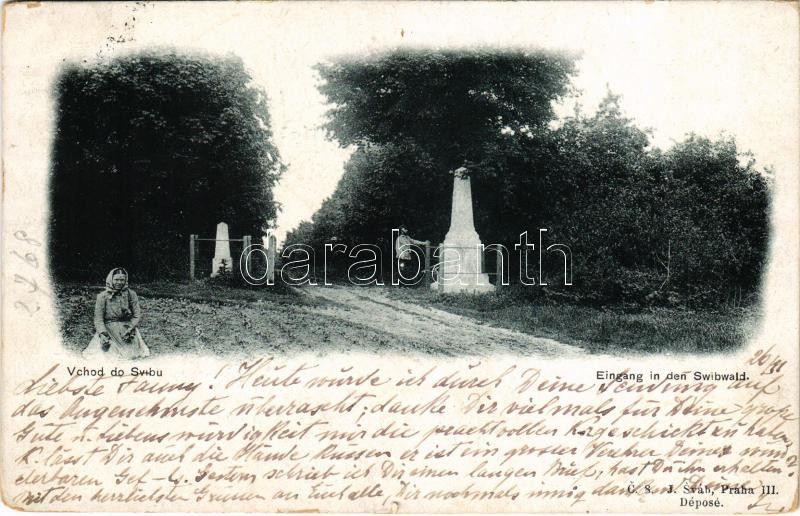 2468
darabanth
Vchod do Svibu
Eingang in den Swibwald.
26/XI
Liebste Fanny! Heute wurde ich durch Deine Sendung auf
das Angenehmste überrascht; danke Dir vielmals für Deine große
Güte u. Liebenswürdigkeit mir die prachtvollen K. geschickt zu haben
K. lässt Dir auch die Hände küssen er ist ein großer Verehrer Deiner wun
derbaren Gestern schrieb ich Dir einen langen Brief, hast Du ihn erhalten?
mit den herzlichsten Grüssen an Euch alle, Dir nochmals innig dankend Deine
Č. S. J. Šváb, Praha III.
Déposé.